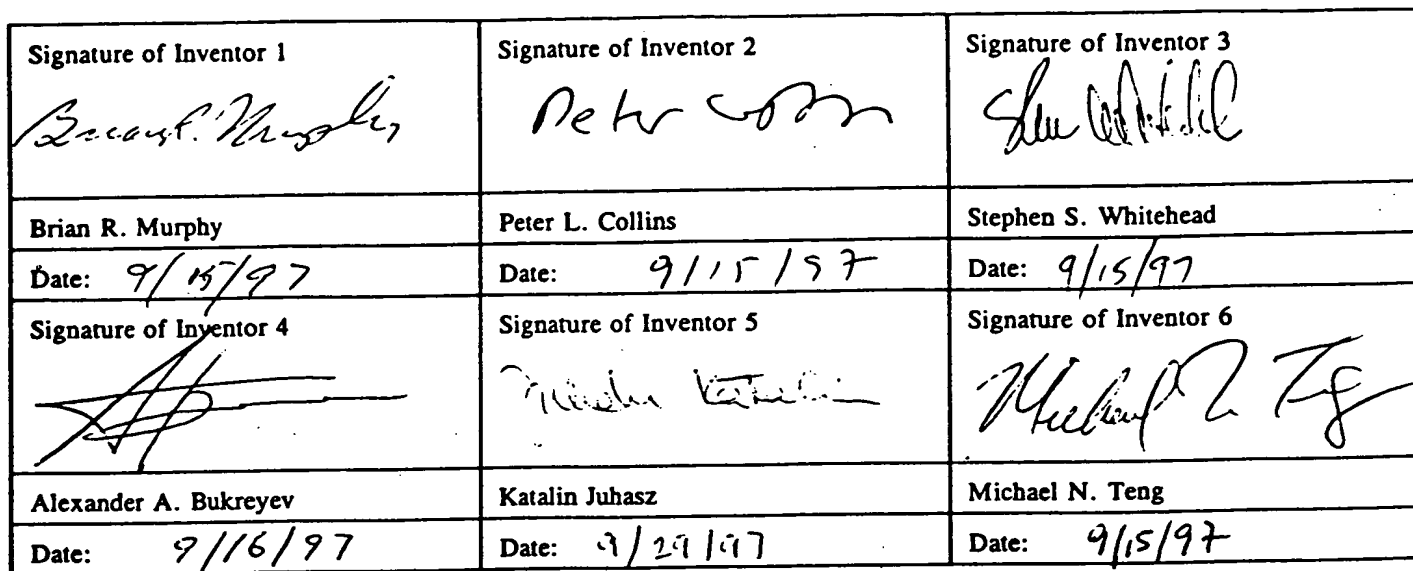 Signature of Inventor 1
Signature of Inventor 2
Signature of Inventor 3
Brian R. Murphy
Peter L. Collins
Stephen S. Whitehead
Date: 9/15/97
Date: 9/15/97
Date: 9/15/97
Signature of Inventor 4
Signature of Inventor 5
Signature of Inventor 6
Katalin
Michael N. Teng
Alexander A. Bukreyev
Katalin Juhasz
Michael N. Teng
Date: 9/16/97
Date: 9/29/97
Date: 9/15/97